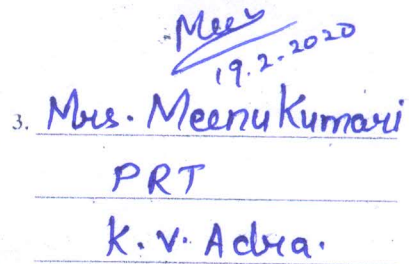 Meen
19.2.2020
3. Mrs. Meenu Kumari
PRT
K. V. Adra.